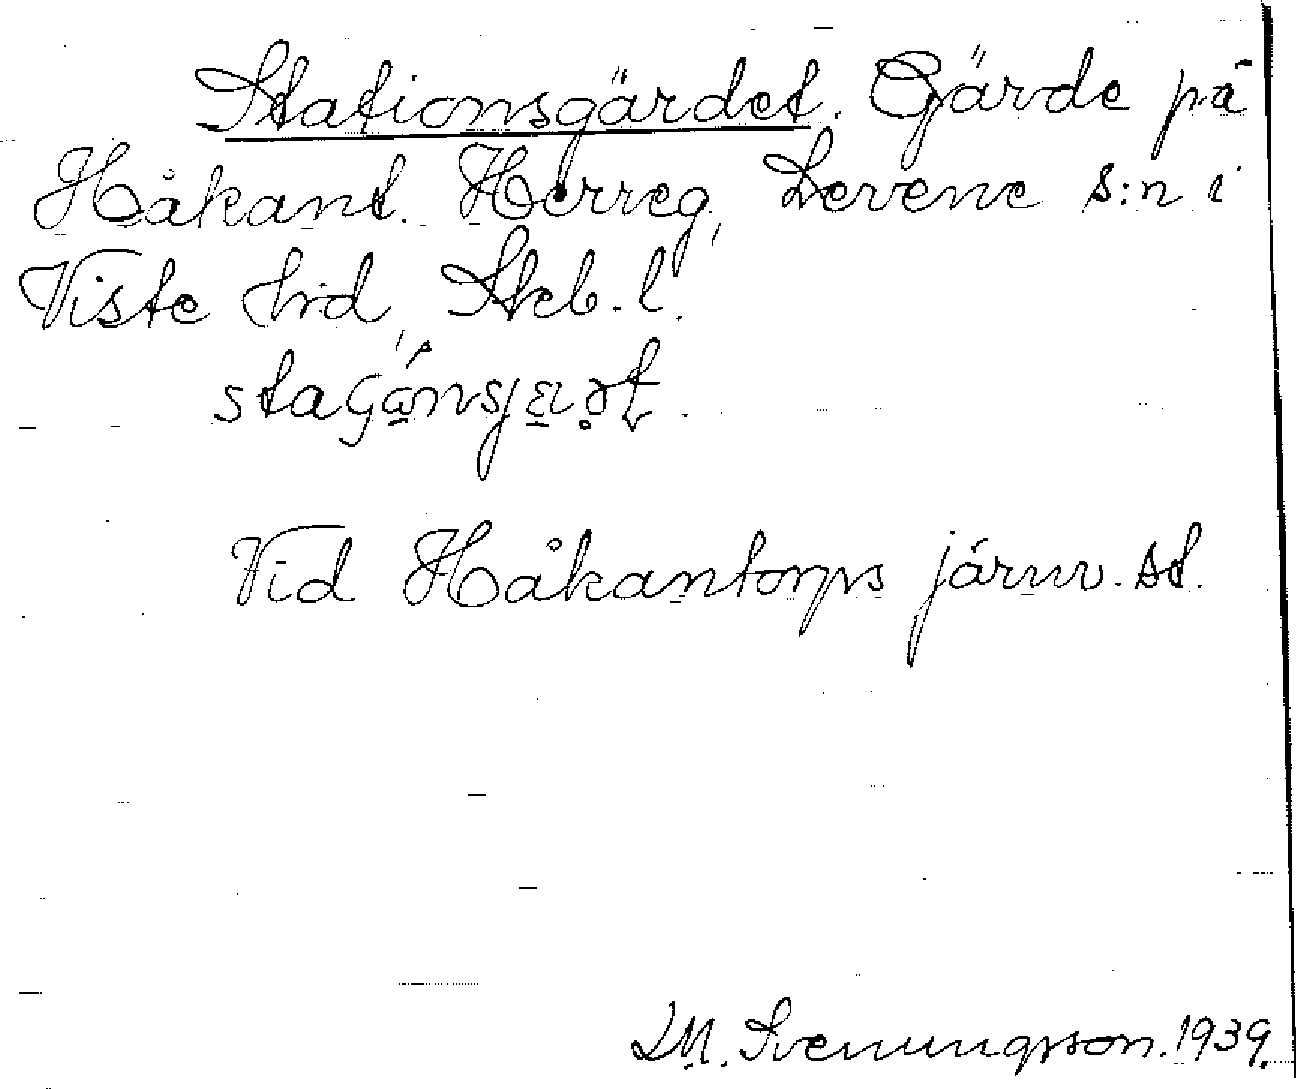 Stationsgärdet. Gärde på
Håkant. Herreg, Levene s:n i
Viste hrd, Skb. l.
Vid Håkantorps järnv. st.
L.M. Svenungsson. 1939.